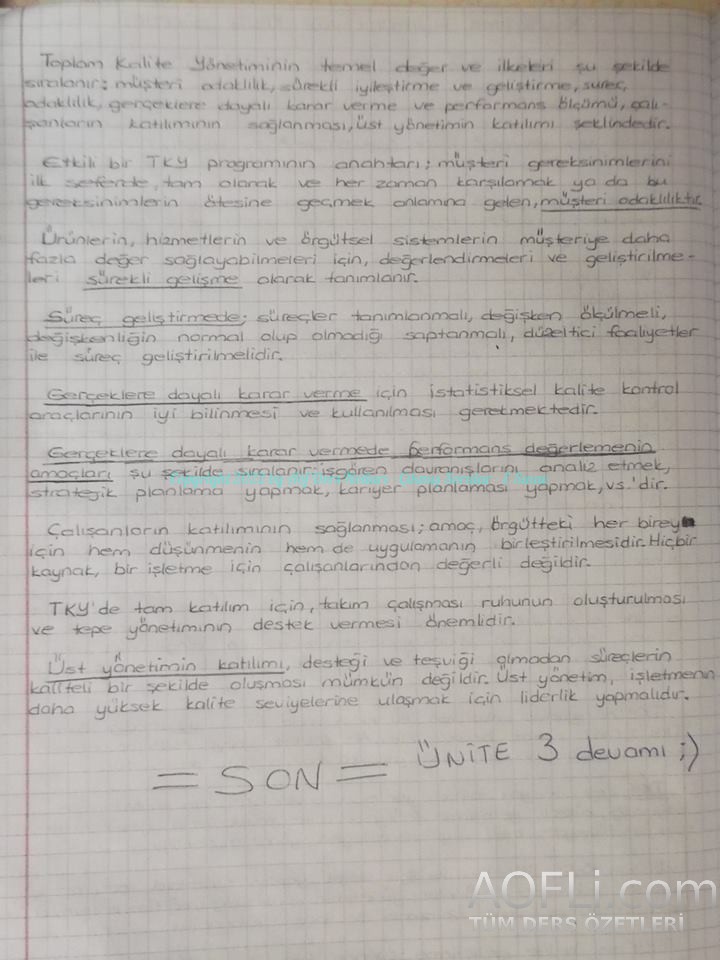 Toplam Kalite Yönetiminin temel değer ve ilkeleri şu şekilde
sıralanır: müşteri odaklılık, sürekli iyileştirme ve geliştirme, süreç
odaklılık, gerçeklere dayalı karar verme ve performans ölçümü, çalı-
şanların katılımının sağlanması, üst yönetimin katılımı şeklindedir.
Etkili bir TKY programının anahtarı; müşteri gereksinimlerini
ilk seferde, tam olarak ve her zaman karşılamak ya da bu
gereksinimlerin ötesine geçmek anlamına gelen, müşteri odaklılıktır.
Ürünlerin, hizmetlerin ve örgütsel sistemlerin müşteriye daha
fazla değer sağlayabilmeleri için, değerlendirmeleri ve geliştirilme-
leri sürekli gelişme olarak tanımlanır.
Süreç geliştirmede; süreçler tanımlanmalı, değişken ölçülmeli,
değişkenliğin normal olup olmadığı saptanmalı, düzeltici faaliyetler
ile süreç geliştirilmelidir.
Gerçeklere dayalı karar verme için istatistiksel kalite kontrol
araçlarının iyi bilinmesi ve kullanılması gerekmektedir.
Gerçeklere dayalı karar vermede performans değerlemenin
amaçları şu şekilde sıralanır: işgören davranışlarını analiz etmek,
stratejik planlama yapmak, kariyer planlaması yapmak, vs.'dir.
Çalışanların katılımının sağlanması; amaç, örgütteki her birey
için hem düşünmenin hem de uygulamanın birleştirilmesidir. Hiçbir
kaynak, bir işletme için çalışanlarından değerli değildir.
TKY'de tam katılım için, takım çalışması ruhunun oluşturulması
ve tepe yönetiminin destek vermesi önemlidir.
Üst yönetimin katılımı, desteği ve teşviği olmadan süreçlerin
kaliteli bir şekilde oluşması mümkün değildir. Üst yönetim, işletmenin
daha yüksek kalite seviyelerine ulaşmak için liderlik yapmalıdır.
= SON = ÜNİTE 3 devamı ;)
AOFLi.com
TÜM DERS ÖZETLERİ